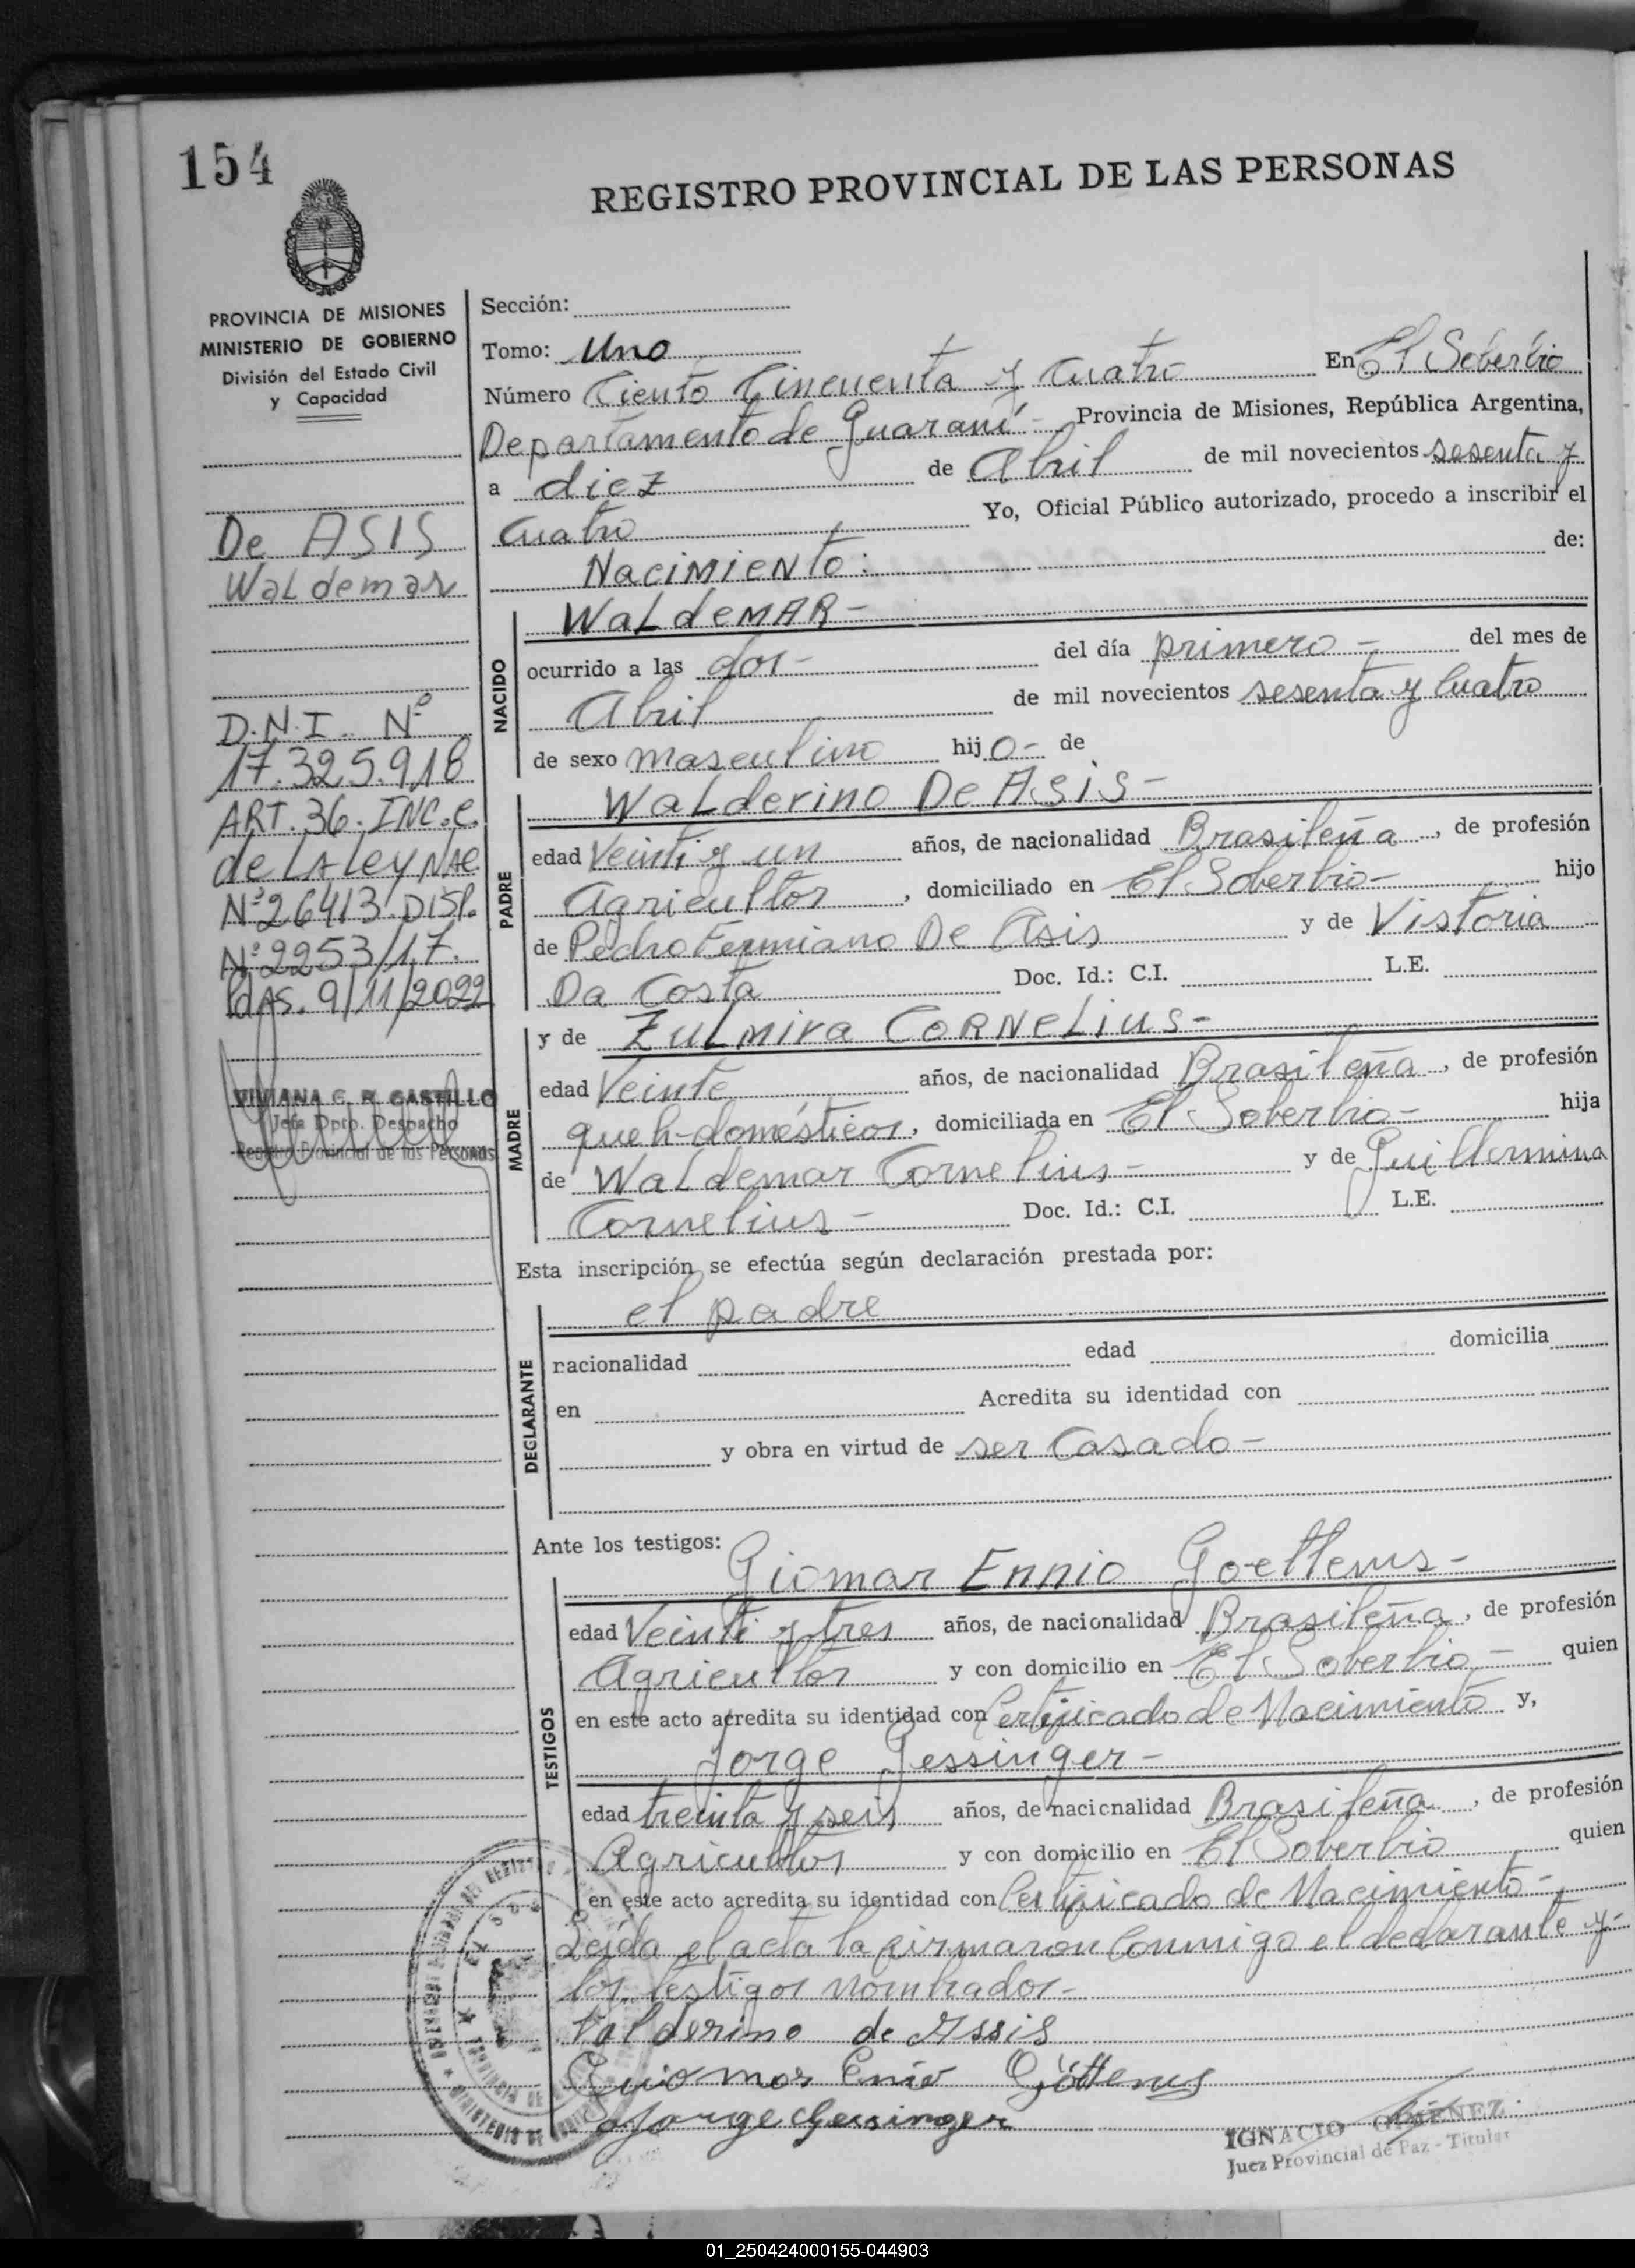 154
REGISTRO PROVINCIAL DE LAS PERSONAS
PROVINCIA DE MISIONES
MINISTERIO DE GOBIERNO
División del Estado Civil
y Capacidad
De ASIS
Waldemar
D.N.I. Nº
17.325.918
ART. 36. INC. C.
de LA Ley NAC.
Nº 26413. DISP.
Nº 2253/17.
Pdas. 9/11/2022
VIVIANA G. R. CASTILLO
Jefa Dpto. Despacho
Registro Provincial de las Personas
Sección:
Tomo: Uno
Número Ciento Cincuenta y Cuatro En El Soberbio
Departamento de Guaraní - Provincia de Misiones, República Argentina,
a diez de Abril de mil novecientos sesenta y
cuatro Yo, Oficial Público autorizado, procedo a inscribir el
Nacimiento: de:
NACIDO
WaLdeMAR -
ocurrido a las dos - del día primero - del mes de
Abril de mil novecientos sesenta y cuatro
de sexo masculino hijo - de
PADRE
WaLderino De Asis -
edad Veinti y un años, de nacionalidad Brasileña, de profesión
Agricultor, domiciliado en El Soberbio - hijo
de Pedro De Asis y de Vistoria
Da Costa Doc. Id.: C.I. L.E.
MADRE
y de ZuLmira CorNeLius -
edad Veinte años, de nacionalidad Brasileña, de profesión
queh-domésticos, domiciliada en El Soberbio - hija
de Waldemar Cornelius - y de Guillermina
Cornelius - Doc. Id.: C.I. L.E.
Esta inscripción se efectúa según declaración prestada por:
DECLARANTE
el padre
nacionalidad edad domicilia
en Acredita su identidad con
y obra en virtud de ser Casado -
Ante los testigos:
TESTIGOS
Giomar Ennio Goettems -
edad Veinti y tres años, de nacionalidad Brasileña, de profesión
Agricultor y con domicilio en El Soberbio - quien
en este acto acredita su identidad con Certificado de Nacimiento y,
Jorge Gessinger -
edad treinta y seis años, de nacionalidad Brasileña, de profesión
Agricultor y con domicilio en El Soberbio quien
en este acto acredita su identidad con Certificado de Nacimiento -
Leída el acta la firmaron Conmigo el declarante y -
los testigos nombrados -
Valderino de Assis
Guiomar Enio Göttems
Jorge Gessinger
IGNACIO GIMENEZ
Juez Provincial de Paz - Titular
01_250424000155-044903